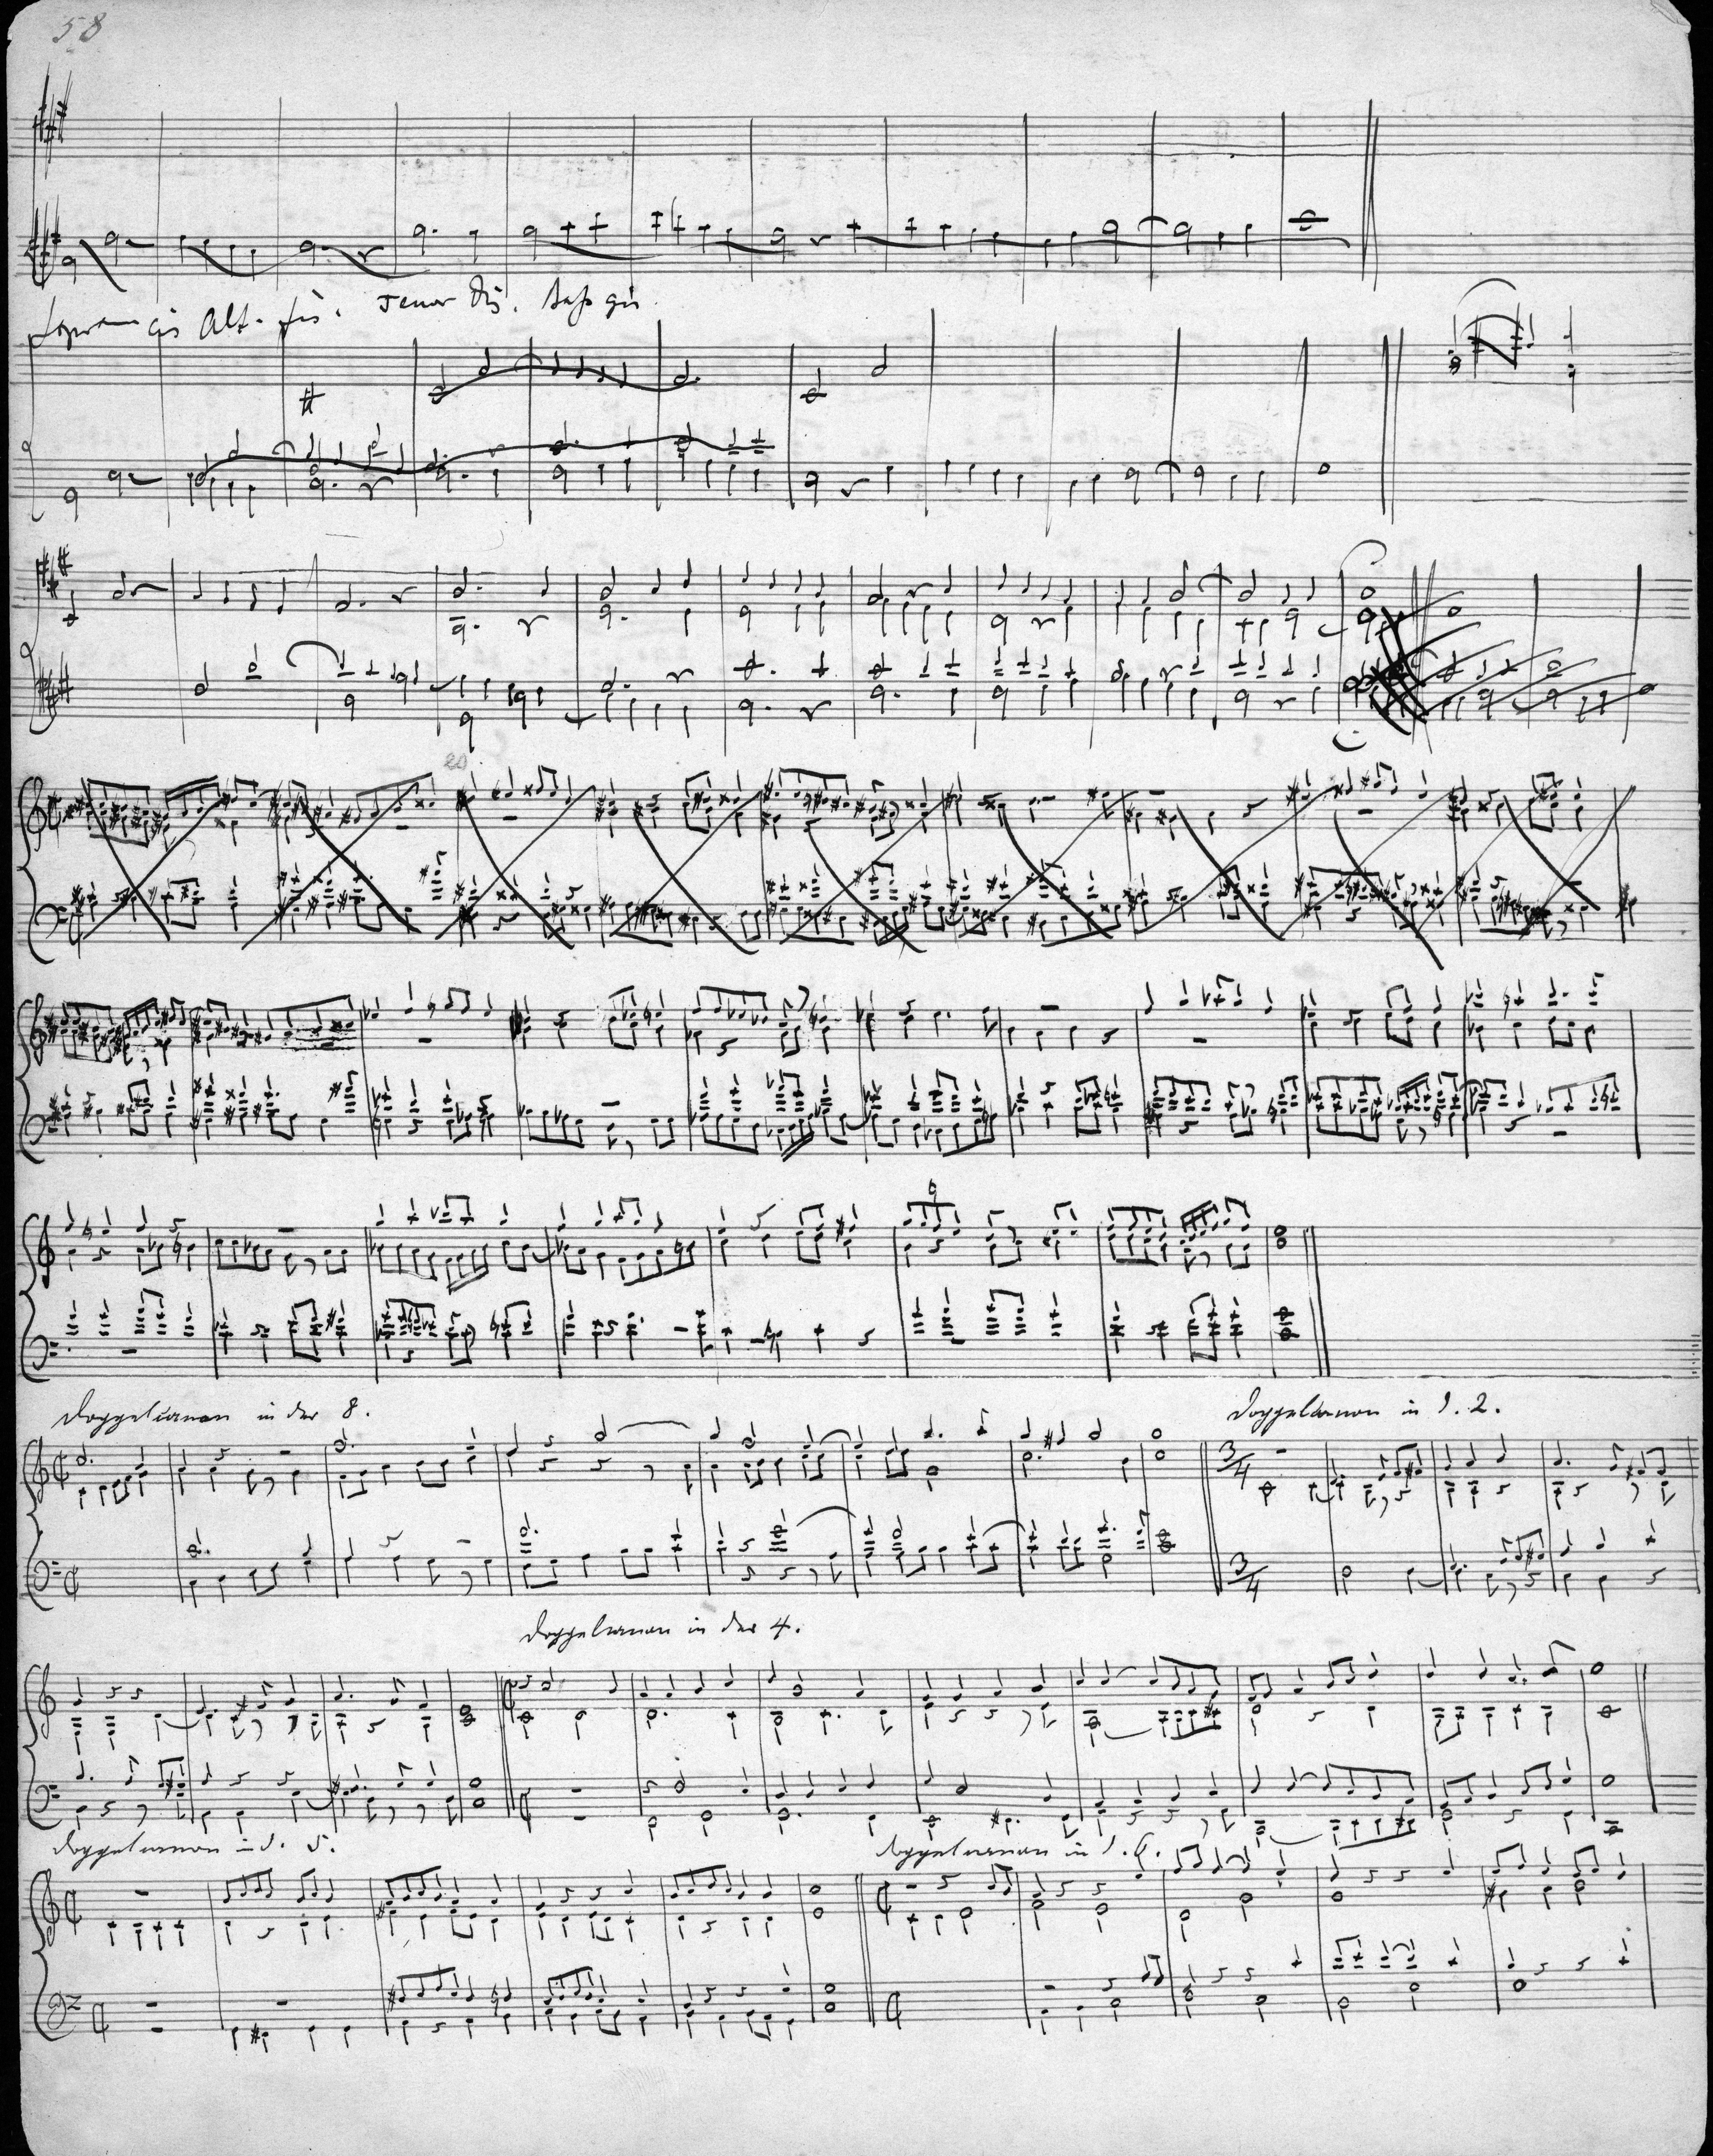 58
Sopran cis Alt. fis. Tenor Dis. Baß gis
Doppelcanon in der 8.
Doppelcanon in d. 2.
3/4
3/4
Doppelcanon in der 4.
Doppelcanon in d. 5.
Doppelcanon in d. 6.